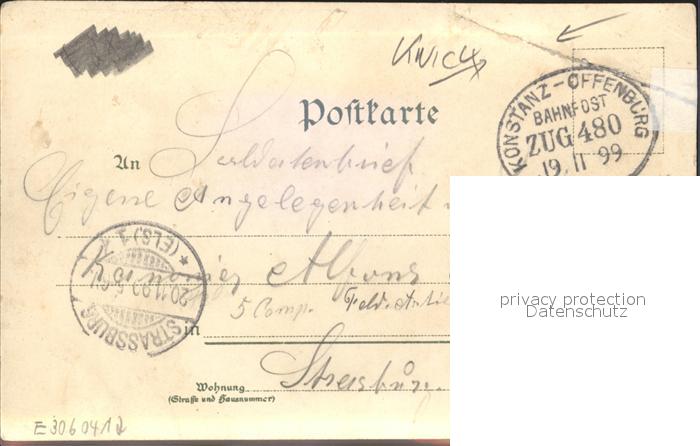 Knick
Postkarte
KONSTANZ - OFFENBURG
BAHNPOST
ZUG 480
19 11 99
An Soldatenbrief
Eigene Angelegenheit
Kanonier Alfons
5 Comp. Feld. Artil
STRASSBURG
(ELS.) 1
20.11.99
in
Strasburg.
Wohnung
(Straße und Hausnummer)
privacy protection
Datenschutz
E3060412